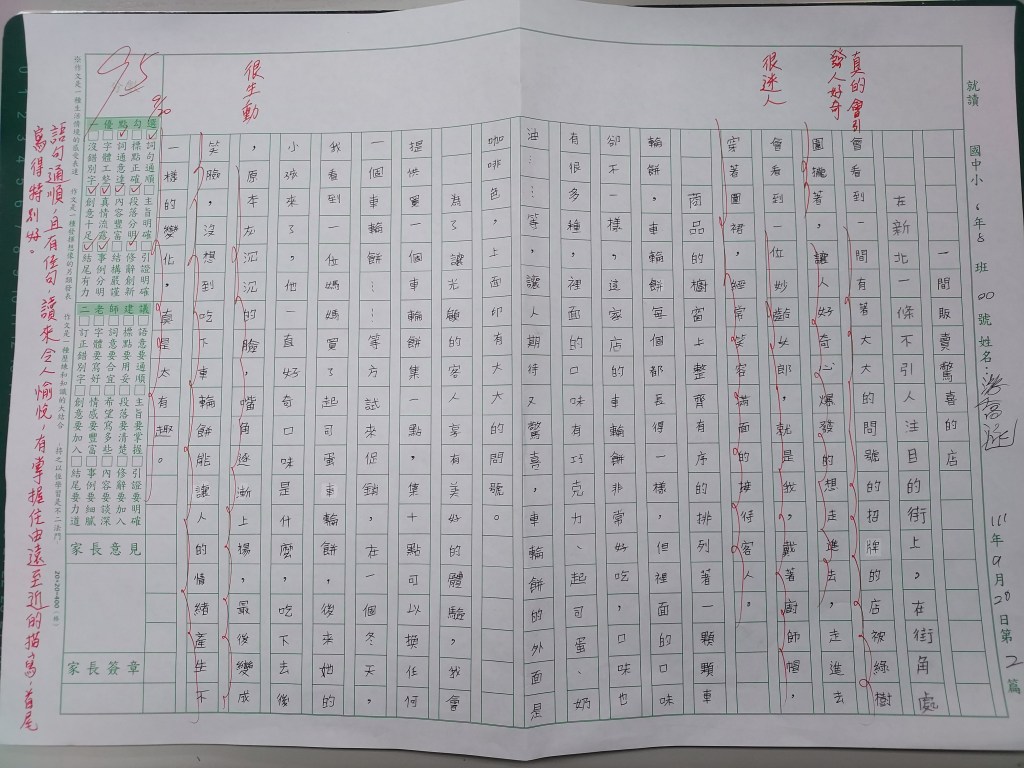 就讀 國中小 6年8班 00號姓名:
111年9月20日第2篇
一間販賣驚喜的店
在新北一條不引人注目的街上,在街角處
會看到一間有著大大的問號的招牌的店被綠樹
圍攏著,讓人好奇心爆發的想走進去,走進去
會看到一位妙齡女郎,就是我,戴著廚師帽,
穿著圍裙,經常笑容滿面的接待客人。
商品的櫥窗上整齊有序的排列著一顆顆車
輪餅,車輪餅每個都長得一樣,但裡面的口味
卻不一樣,這家店的車輪餅非常好吃,口味也
有很多種,裡面的口味有巧克力、起司蛋、奶
油……等,讓人期待又驚喜,車輪餅的外面是
咖啡色,上面印有大大的問號。
為了讓光顧的客人享有美好的體驗,我會
提供買一個車輪餅集一點,集十點可以換任何
一個車輪餅等方式來促銷,在一個冬天,
我看到一位媽媽買了起司蛋車輪餅,後來她的
小孩來了,他一直好奇口味是什麼,吃下去後
,原本灰沉沉的臉,嘴角逐漸上揚,最後變成
笑臉,沒想到吃下車輪餅能讓人的情緒產生不
一樣的變化,真是太有趣。
真的會引發人好奇
很迷人
很生動
95
9/30
一優點勾選
詞句通順 主旨明確 引證明確
標點正確 段落分明 修辭創新
詞意通達 內容豐富 結構嚴謹
字體工整 真情流露 事例分明
沒錯別字 創意十足 結尾有力
二老師建議
語意要通順 主旨要掌握 引證要明確
標點要用妥 段落要清楚 修辭要加入
詞要合宜 希望寫多些 內容要談深
字體要寫好 情感要豐富 事例要細膩
訂正錯別字 創意要加入 結尾要力道
家長意見
家長簽章
20×20=400(格)
※作文是一種生活情境的感受表達 作文是一種發揮想像的另類發表 作文是一種歷練和知識的大結合 持之以恆學習是不二法門
語句通順,且有佳句,讀來令人愉悅,有掌握住由遠至近的描寫,首尾
寫得特別好。